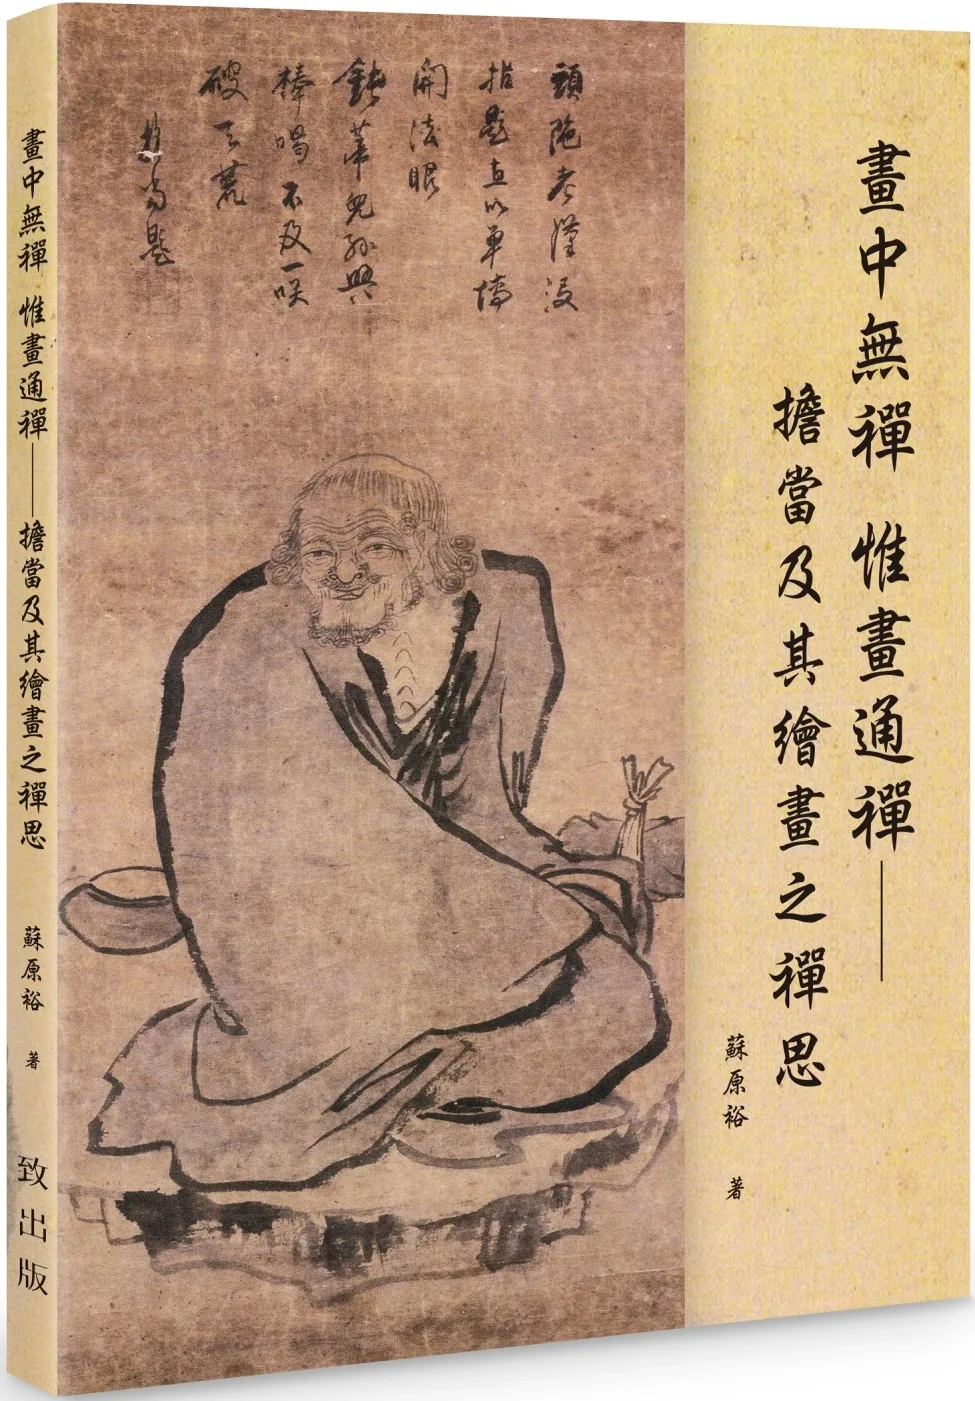 畫中無禪 惟畫通禪——
擔當及其繪畫之禪思
蘇原裕 著
頭陁老漢沒
開法眼
兒孫與
棒喝不及一咲
破天荒
擔當題
畫中無禪 惟畫通禪——擔當及其繪畫之禪思 蘇原裕 著 致出版